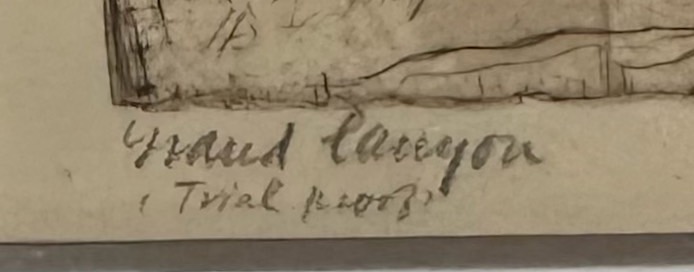 Grand Canyon
(Trial proof)